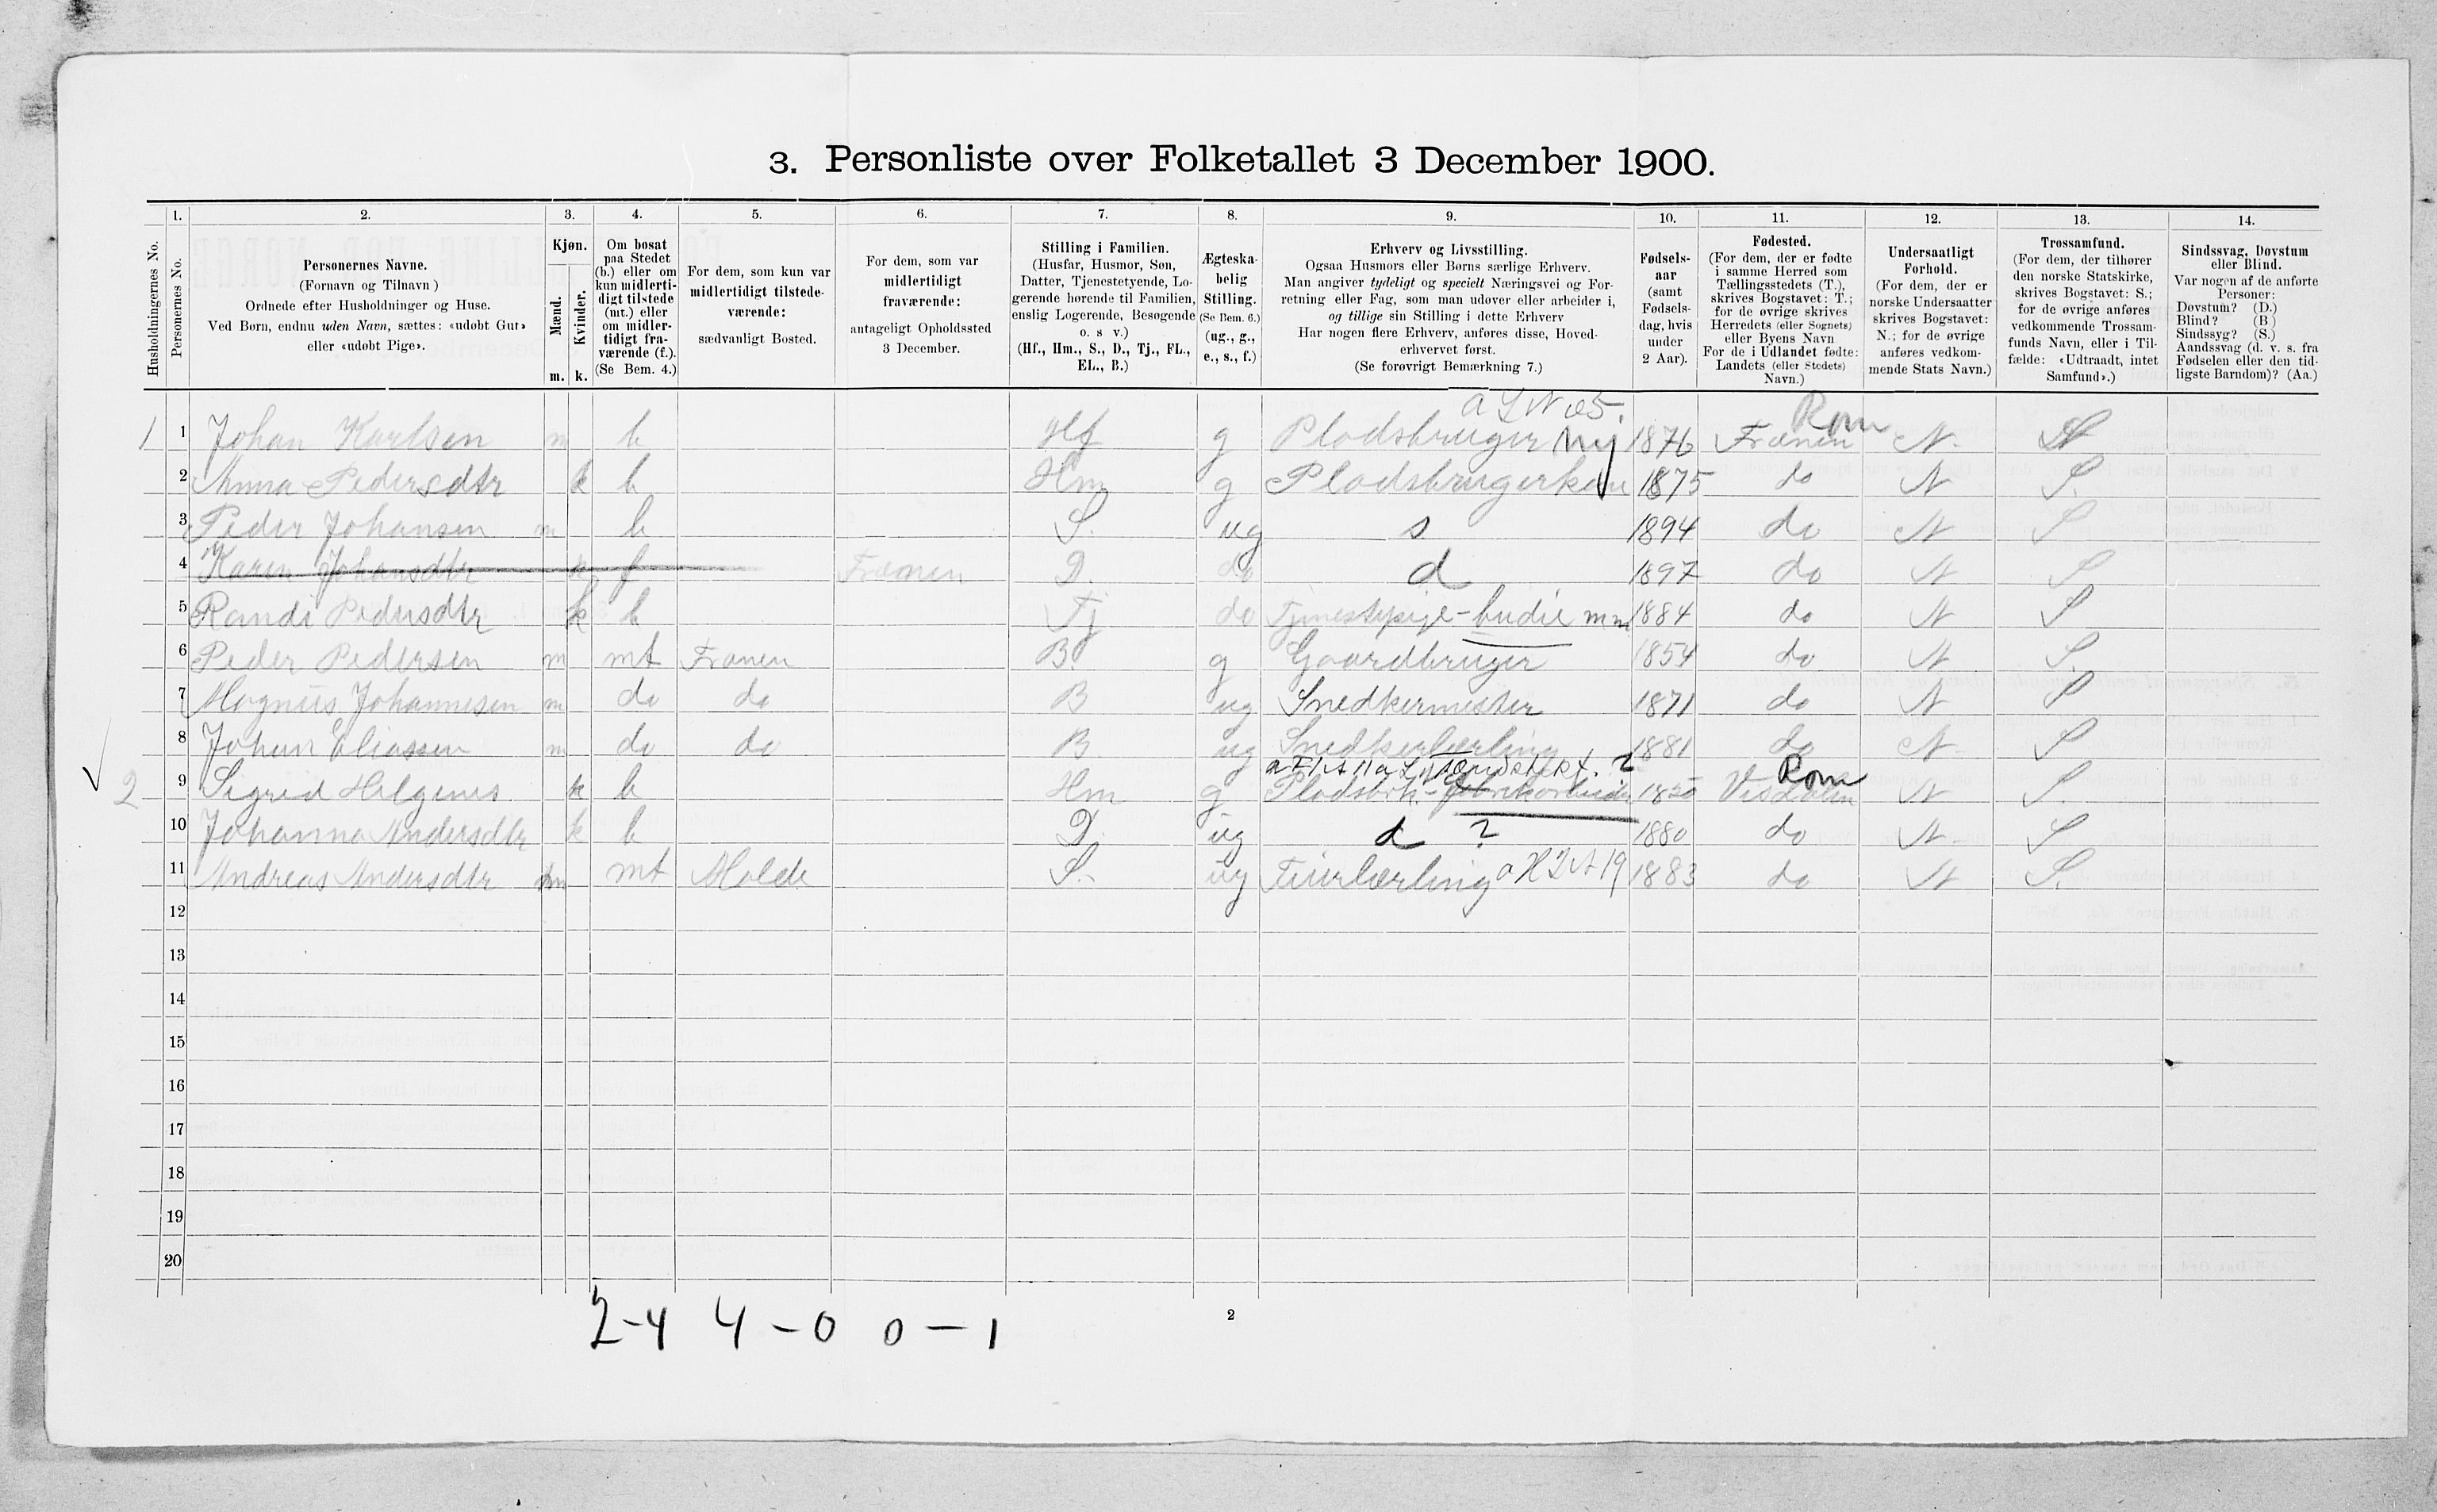 3. Personliste over Folketallet 3 December 1900.
Husholdningernes No.
1.
Personernes No.
2.
Personernes Navne.
(Fornavn og Tilnavn)
Ordnede efter Husholdninger og Huse.
Ved Børn, endnu uden Navn, sættes: «udøbt Gut»
eller «udøbt Pige».
3.
Kjøn.
Mænd.
Kvinder.
m. k.
4.
Om bosat
paa Stedet
(b.) eller om
kun midlerti-
digt tilstede
(mt.) eller
om midler-
tidigt fra-
værende (f.).
(Se Bem. 4.)
5.
For dem, som kun var
midlertidigt tilstede-
værende:
sædvanligt Bosted.
6.
For dem, som var
midlertidigt
fraværende:
antageligt Opholdssted
3 December.
7.
Stilling i Familien.
(Husfar, Husmor, Søn,
Datter, Tjenestetyende, Lo-
gerende hørende til Familien,
enslig Logerende, Besøgende
o. s v.)
(Hf., Hm., S., D., Tj., FL.,
EL., B.)
8.
Ægteska-
belig
Stilling.
(Se Bem. 6.)
(ug., g.,
e., s., f.)
9.
Erhverv og Livsstilling.
Ogsaa Husmors eller Børns særlige Erhverv.
Man angiver tydeligt og specielt Næringsvei og For-
retning eller Fag, som man udøver eller arbeider i,
og tillige sin Stilling i dette Erhverv
Har nogen flere Erhverv, anføres disse, Hoved-
erhvervet først.
(Se forøvrigt Bemærkning 7.)
10.
Fødsels-
aar
(samt
Fødsels-
dag, hvis
under
2 Aar).
11.
Fødested.
(For dem, der er fødte
i samme Herred som
Tællingsstedets (T.),
skrives Bogstavet: T.;
for de øvrige skrives
Herredets (eller Sognets)
eller Byens Navn
For de i Udlandet fødte:
Landets (eller Stedets)
Navn.)
12.
Undersaatligt
Forhold.
(For dem, der er
norske Undersaatter
skrives Bogstavet:
N.; for de øvrige
anføres vedkom-
mende Stats Navn.)
13.
Trossamfund.
(For dem, der tilhører
den norske Statskirke,
skrives Bogstavet: S.;
for de øvrige anføres
vedkommende Trossam-
funds Navn, eller i Til-
fælde: «Udtraadt, intet
Samfund».)
14.
Sindssvag, Døvstum
eller Blind.
Var nogen af de anførte
Personer:
Døvstum? (D.)
Blind? (B.)
Sindssyg? (S.)
Aandssvag (d. v. s. fra
Fødselen eller den tid-
ligste Barndom)? (Aa.)
Rom
1 1 Johan Karlsen m b Hf g Pladsbruger 1876 Frænen N. S
2 Anna Pedersdtr k b Hm g 1875 do N S.
3 Peder Johansen m b S. ug s 1894 do N S
4 Karen Johansdtr k f Frænen D. do d 1897 do N S
5 Randi Pedersdtr k b Tj do Tjenestepige - budeie 1884 do N S
6 Peder Pedersen m mt Frænen B. g Gaardbruger 1854 do N S.
7 Magnus Johannesen m do do B ug Snedkermester 1871 do N S
8 Johan Eliassen m do do B ug Snedkerlærling 1881 do N S
Rom
2 9 Sigrid Helgenes k b Hm g N S.
10 Johanna Andersdtr k b D. ug d ? 1880 do N S
11 Andreas Andersdtr m mt Molde S. ug 1883 do N S.
12
13
14
15
16
17
18
19
20
2-4 4-0 0-1
2